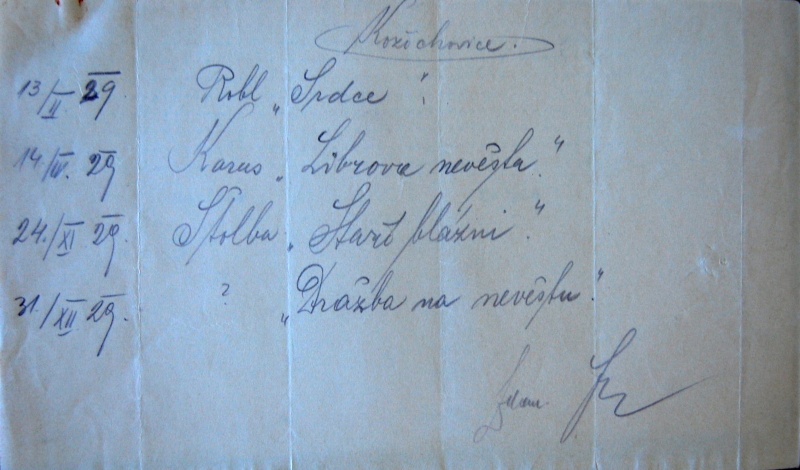 Kožichovice.
13/II 29 Robl „Srdce“.
14/IV. 29 Karas „Librova nevěsta.“
24./XI 29. Štolba „Staří blázni.“
31./XII 29. ? „Dražba na nevěstu.“